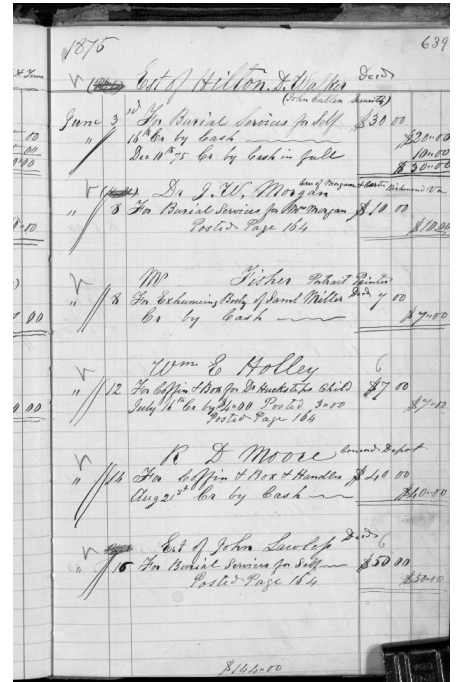 1875 639
Est of Hilton D. Walker Decd
(John Cullen Security)
June 3rd For Burial Services for Self $30 00
" 16th Cr by Cash $20"00
Dec 18th 75 Cr by Cash in full 10"00
$30"00
Dr J. W. Morgan Richmond Va
" 8 For Burial Services for Mrs Morgan $10 00
Posted Page 164 $10.00
Mr Fisher Portrait Painter
" 8 For Exhumeing Body of Saml Miller Decd 7 00
Cr by Cash $7"00
Wm E Holley
" 12 For Coffin & Box for Dr Huckstep's Child $7 00
July 16th Cr by $4"00 Posted 3"00 $7"00
Posted Page 164
R D Moore Depot
" 14 For Coffin & Box & Handles $40 00
Aug 21st Cr by Cash $40"00
Est of John Lawless Decd
" 16 For Burial Services for Self $50 00
Posted Page 164 $50"00
$144"00